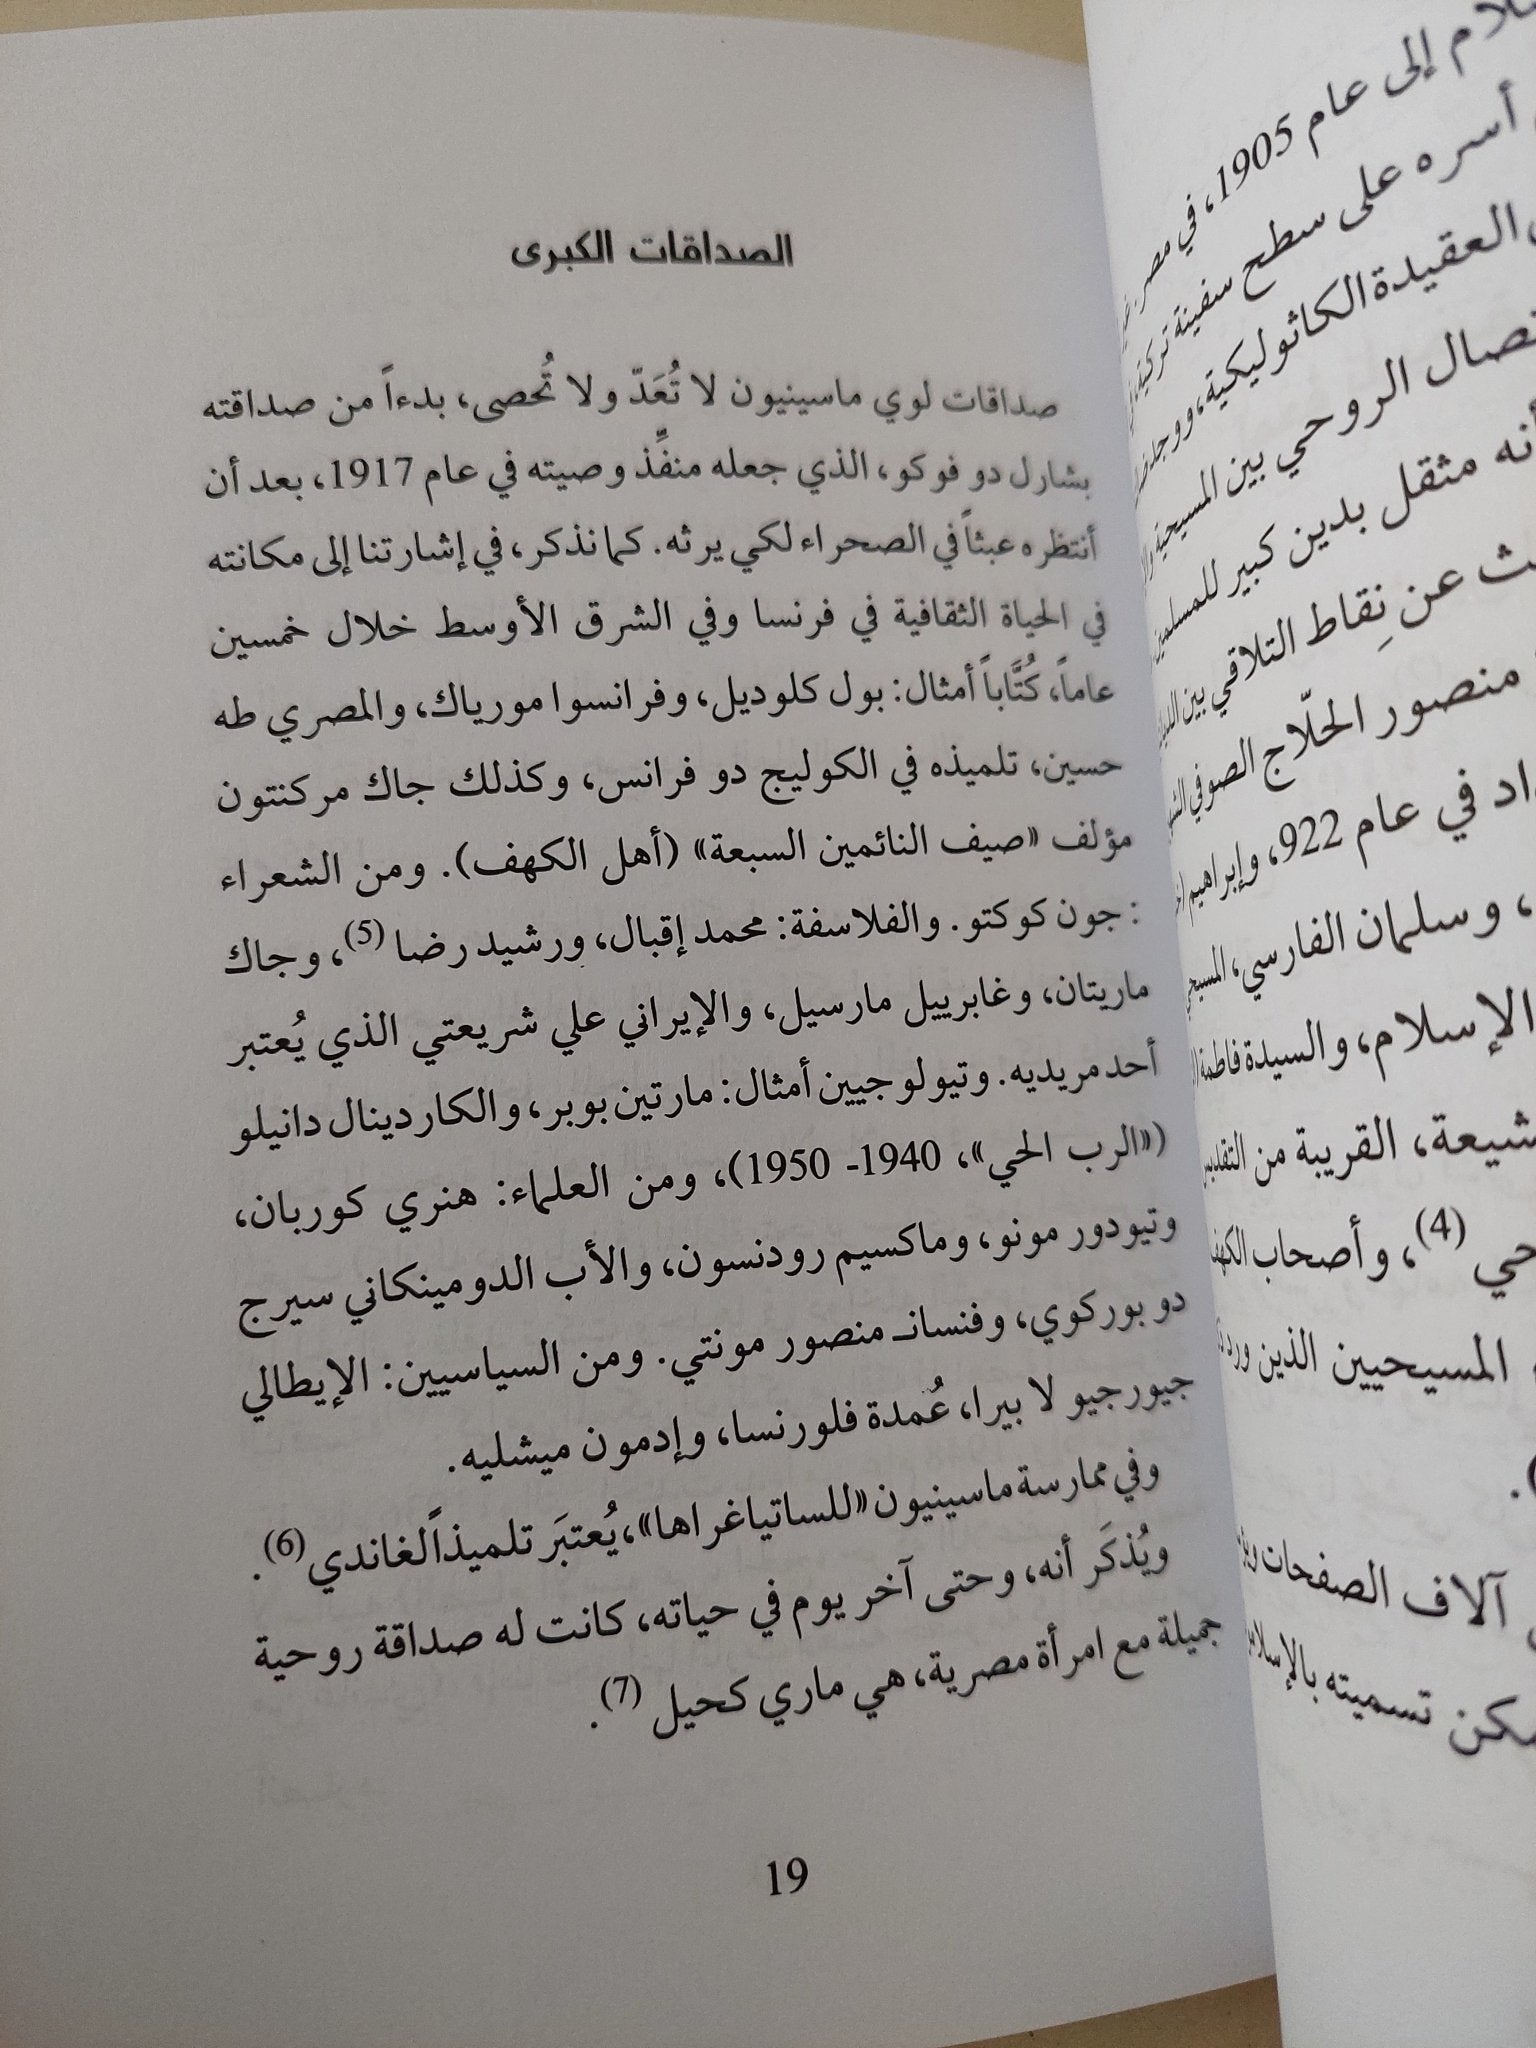 الصداقات الكبرى
صداقات لوي ماسينيون لا تُعَدّ ولا تُحصى، بدءاً من صداقته
بشارل دو فوكو، الذي جعله منفِّذ وصيته في عام 1917، بعد أن
أنتظره عبثاً في الصحراء لكي يرثه. كما نذكر، في إشارتنا إلى مكانته
في الحياة الثقافية في فرنسا وفي الشرق الأوسط خلال خمسين
عاماً، كُتَّاباً أمثال: بول كلوديل، وفرانسوا مورياك، والمصري طه
حسين، تلميذه في الكوليج دو فرانس، وكذلك جاك مركنتون
مؤلف «صيف النائمين السبعة» (أهل الكهف). ومن الشعراء
: جون كوكتو. والفلاسفة: محمد إقبال، ورشيد رضا (5)، وجاك
ماريتان، وغابرييل مارسيل، والإيراني علي شريعتي الذي يُعتبر
أحد مريديه. وتيولوجيين أمثال: مارتين بوبر، والكاردينال دانيلو
(«الرب الحي»، 1940- 1950)، ومن العلماء: هنري كوربان،
وتيودور مونو، وماكسيم رودنسون، والأب الدومينكاني سيرج
دو بوركوي، وفنسانـ منصور مونتي. ومن السياسيين: الإيطالي
جيورجيو لا بيرا، عُمدة فلورنسا، وإدمون ميشليه.
وفي ممارسة ماسينيون «للساتياغراها»، يُعتبَر تلميذاً لغاندي (6).
ويُذكَر أنه، وحتى آخر يوم في حياته، كانت له صداقة روحية
جميلة مع امرأة مصرية، هي ماري كحيل (7).
19
إلى عام 1905، في مصر
أسره على سطح سفينة تركية
العقيدة الكاثوليكية، ووجد
الروحي بين المسيحية
مثقل بدين كبير للمسلمين
عن نِقاط التلاقي بين
منصور الحلّاج الصوفي
في عام 922، وإبراهيم
، وسلمان الفارسي،
الإسلام، والسيدة فاطمة
القريبة من
(4)، وأصحاب
المسيحيين الذين
).
آلاف الصفحات
تسميته